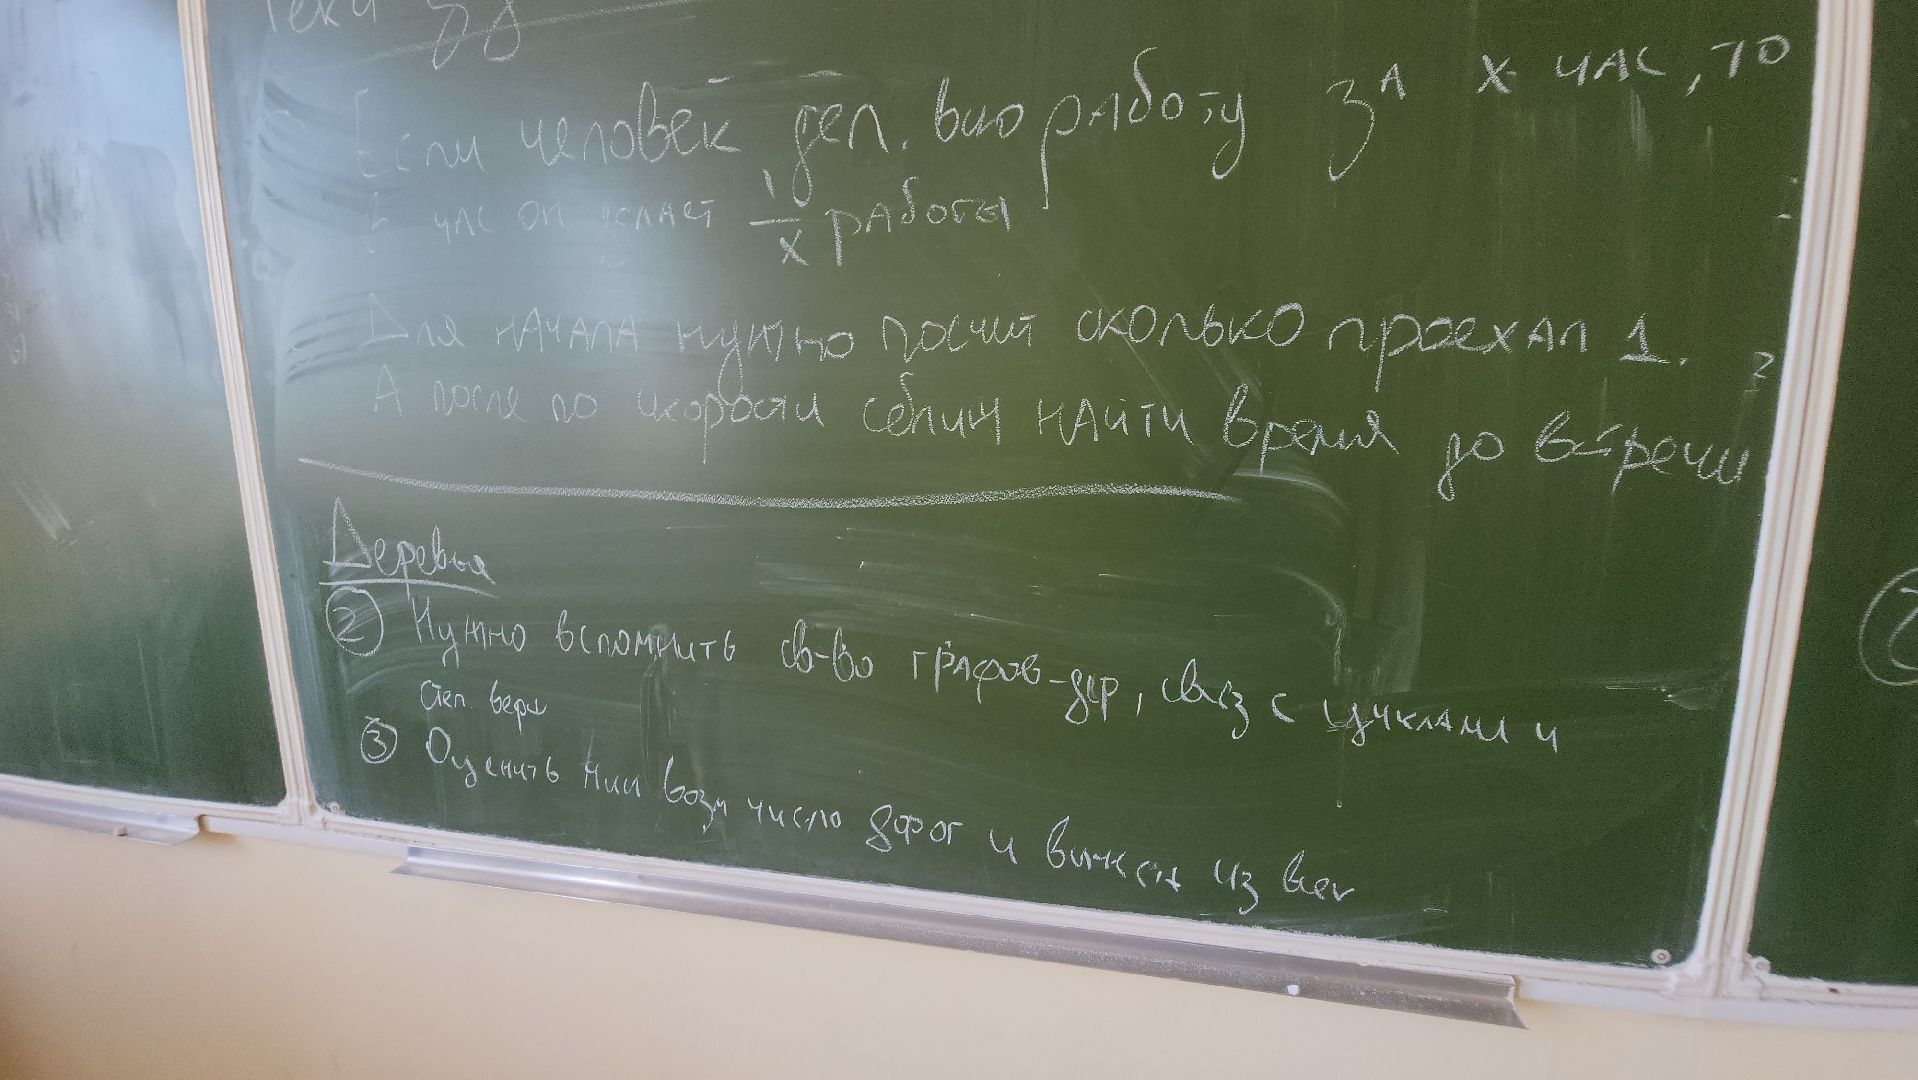 Если человек дел. всю работу за x час, то
в час он делает 1/x работы
Для начала нужно посчит сколько проехал 1.
А после по скорости сближ найти время до встречи
Деревья
② Нужно вспомнить св-во графов-дер, связ с циклами и
степ верш
③ Оценить мин возм число дорог и вычесть из всех